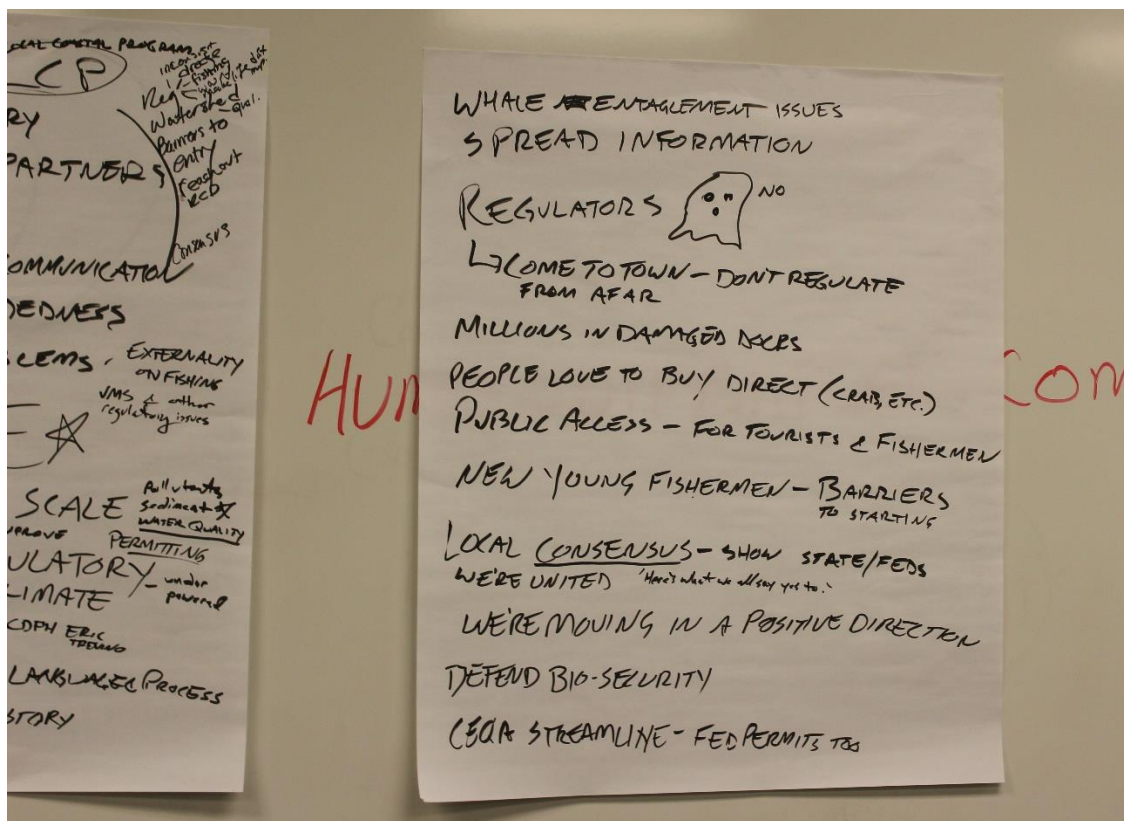 LOCAL COASTAL PROGRAM
LCP
Reg
fishing
Watershed
qual.
Barriers to
entry
reachout
RCD
Consensus
RY
PARTNERS
OMMUNICATION
DEDNESS
LEMS
EXTERNALITY
ON FISHING
VMS & other
regulatory issues
E
SCALE
Pollutants
Sediment
WATER QUALITY
PROVE
PERMITTING
ULATORY - under
powered
LIMATE
CDPH ERIC
LANGUAGE & PROCESS
STORY
HUM
COM
WHALE ENTAGLEMENT ISSUES
SPREAD INFORMATION
REGULATORS NO
COME TO TOWN - DONT REGULATE
FROM AFAR
MILLIONS IN DAMAGED DOCKS
PEOPLE LOVE TO BUY DIRECT (CRAB, ETC.)
PUBLIC ACCESS - FOR TOURISTS & FISHERMEN
NEW YOUNG FISHERMEN - BARRIERS
TO STARTING
LOCAL CONSENSUS - SHOW STATE/FEDS
WE'RE UNITED "Here's what we all say yes to."
WE'RE MOVING IN A POSITIVE DIRECTION
DEFEND BIO-SECURITY
CEQA STREAMLINE - FED PERMITS TOO